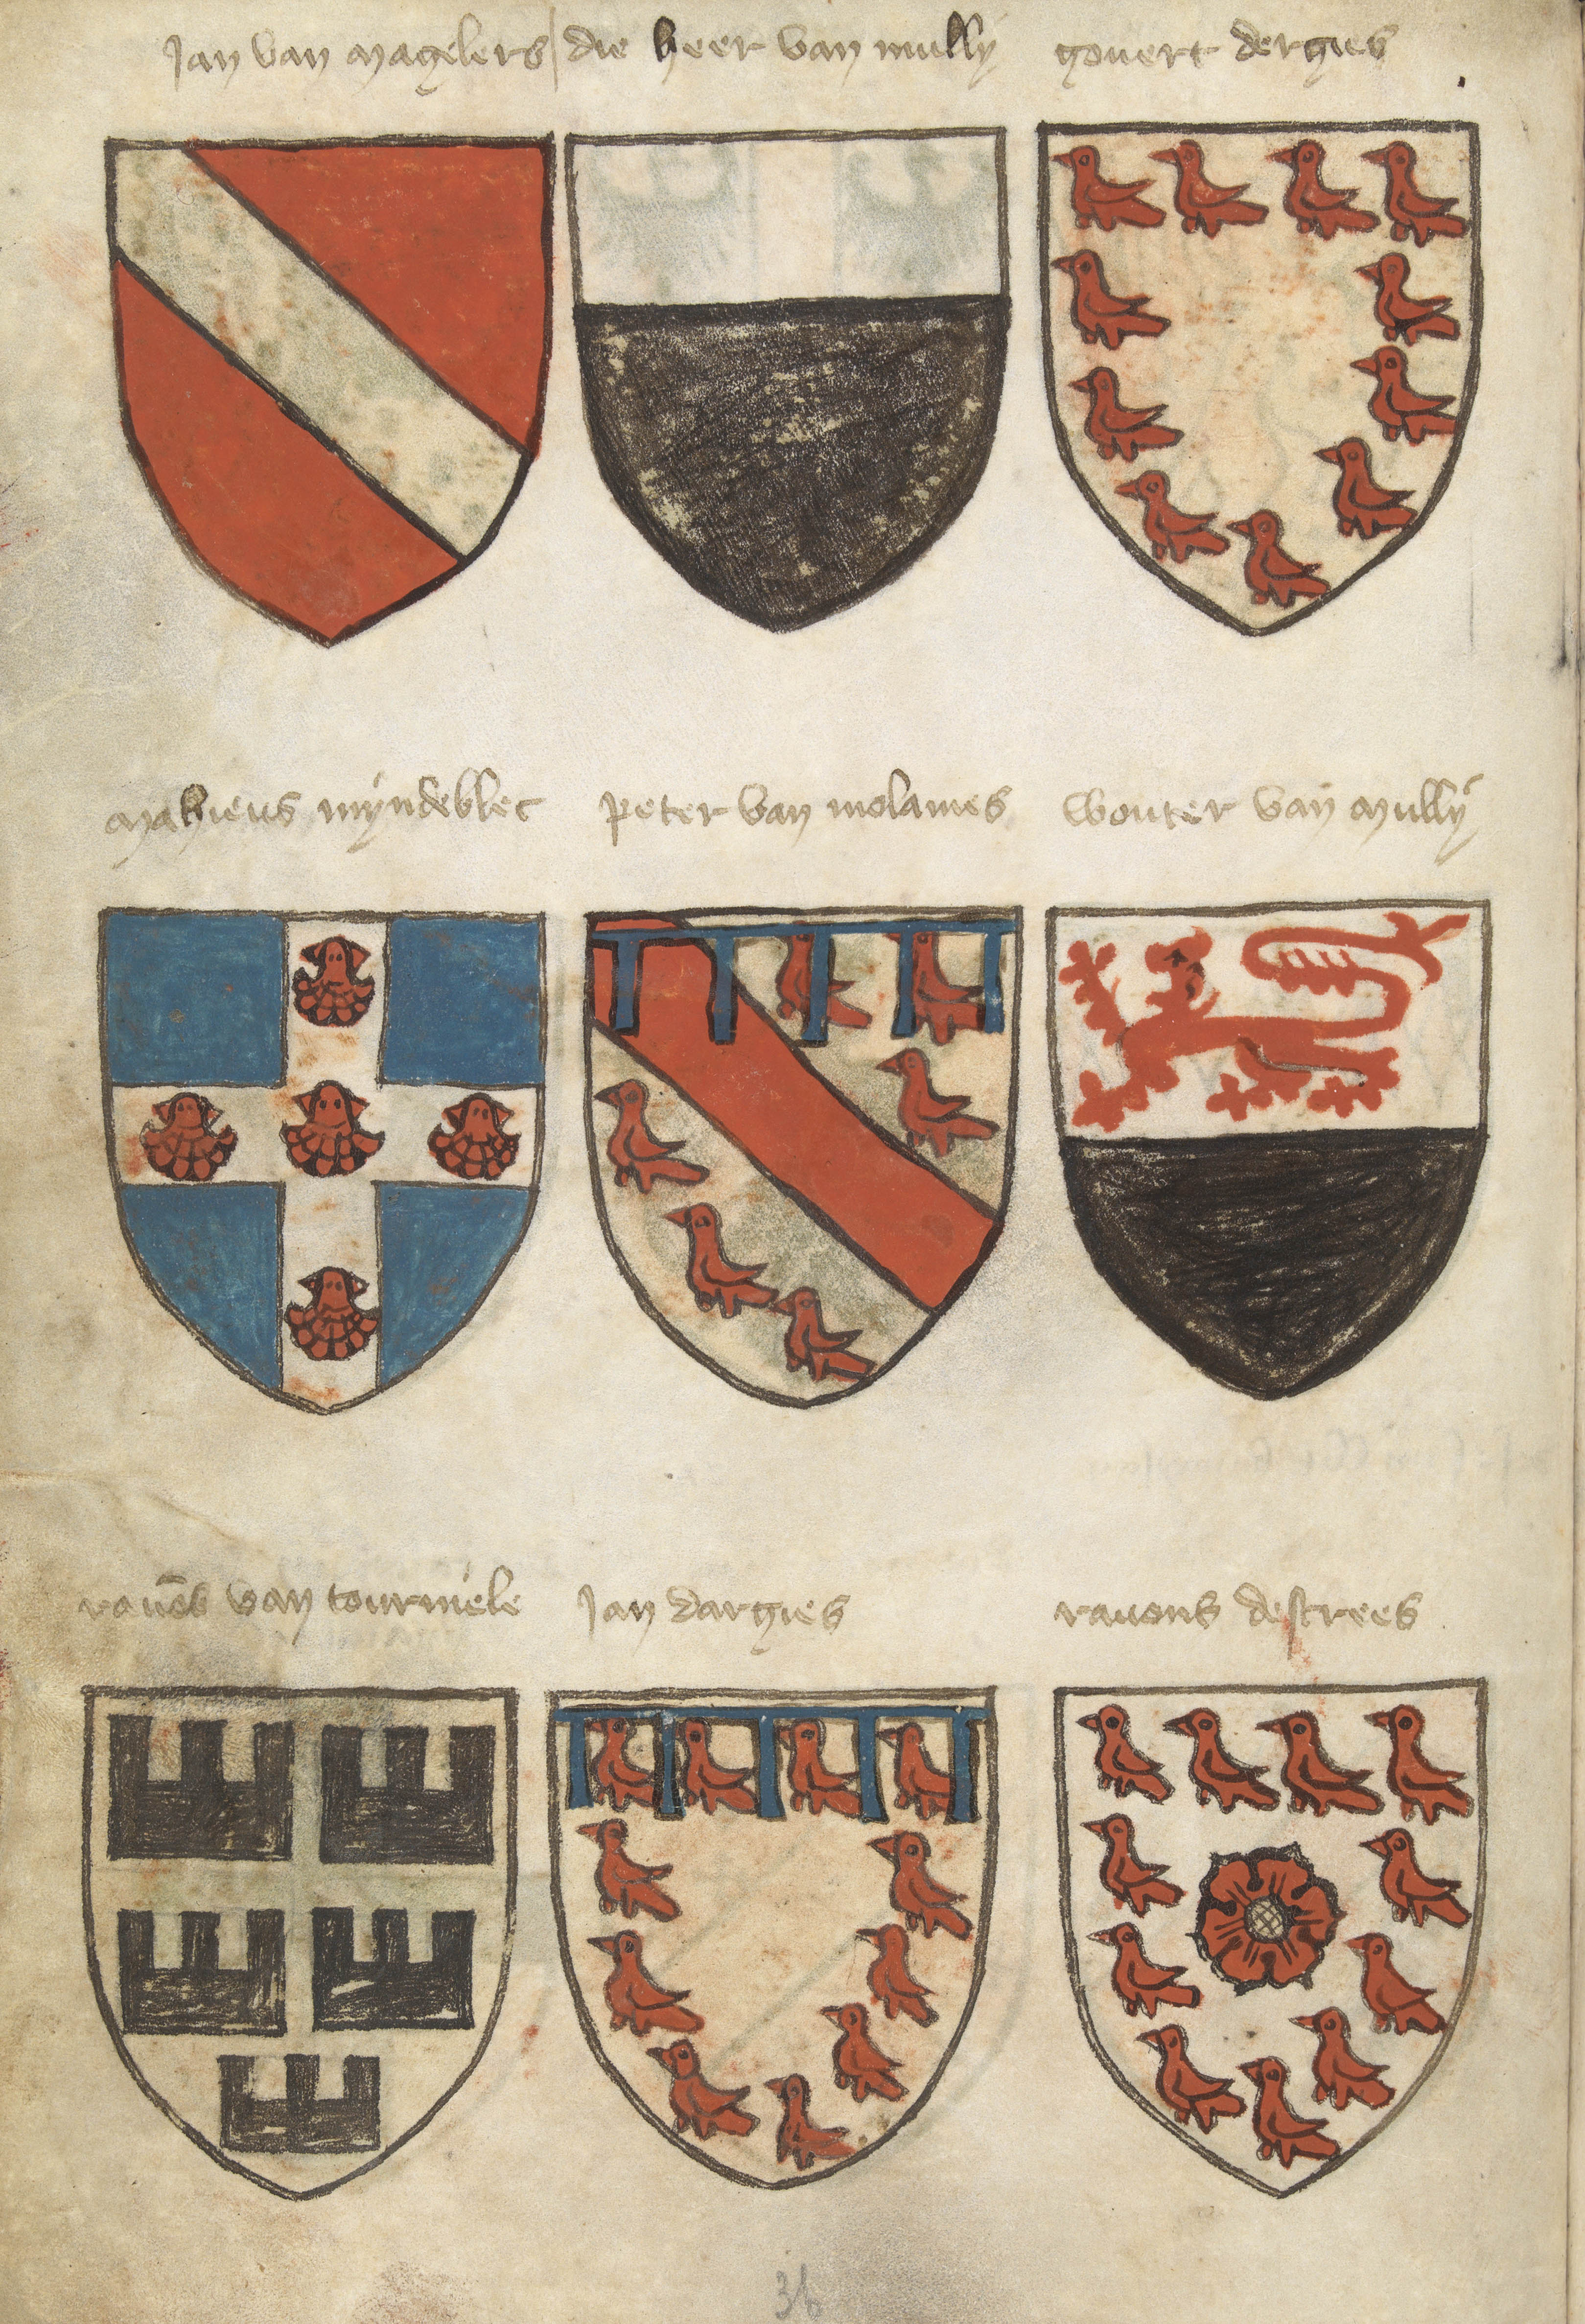 Jan van magelers | die heer van mully govert dergies
mahieus myndeblec peter van molames wouter van mully
van tourmele Jan dargies ravons destrees
36